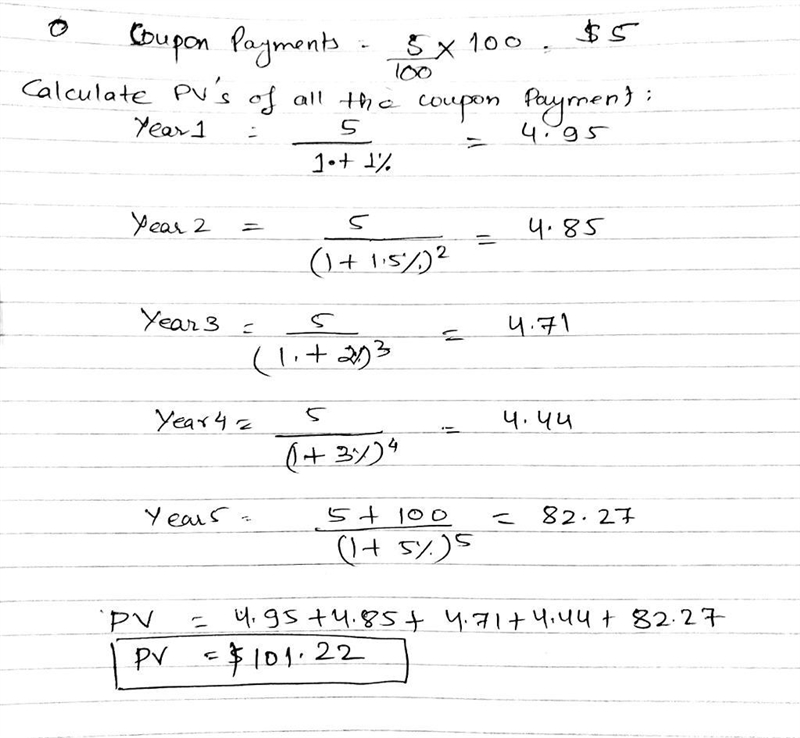 o Coupon Payments = 5/100 × 100 = $5
Calculate PV's of all the coupon Payment:
Year 1 = 5/(1+1%) = 4.95
Year 2 = 5/(1+1.5%)² = 4.85
Year 3 = 5/(1+2%)³ = 4.71
Year 4 = 5/(1+3%)⁴ = 4.44
Year 5 = 5+100/(1+5%)⁵ = 82.27
PV = 4.95+4.85+4.71+4.44+82.27
PV = $101.22